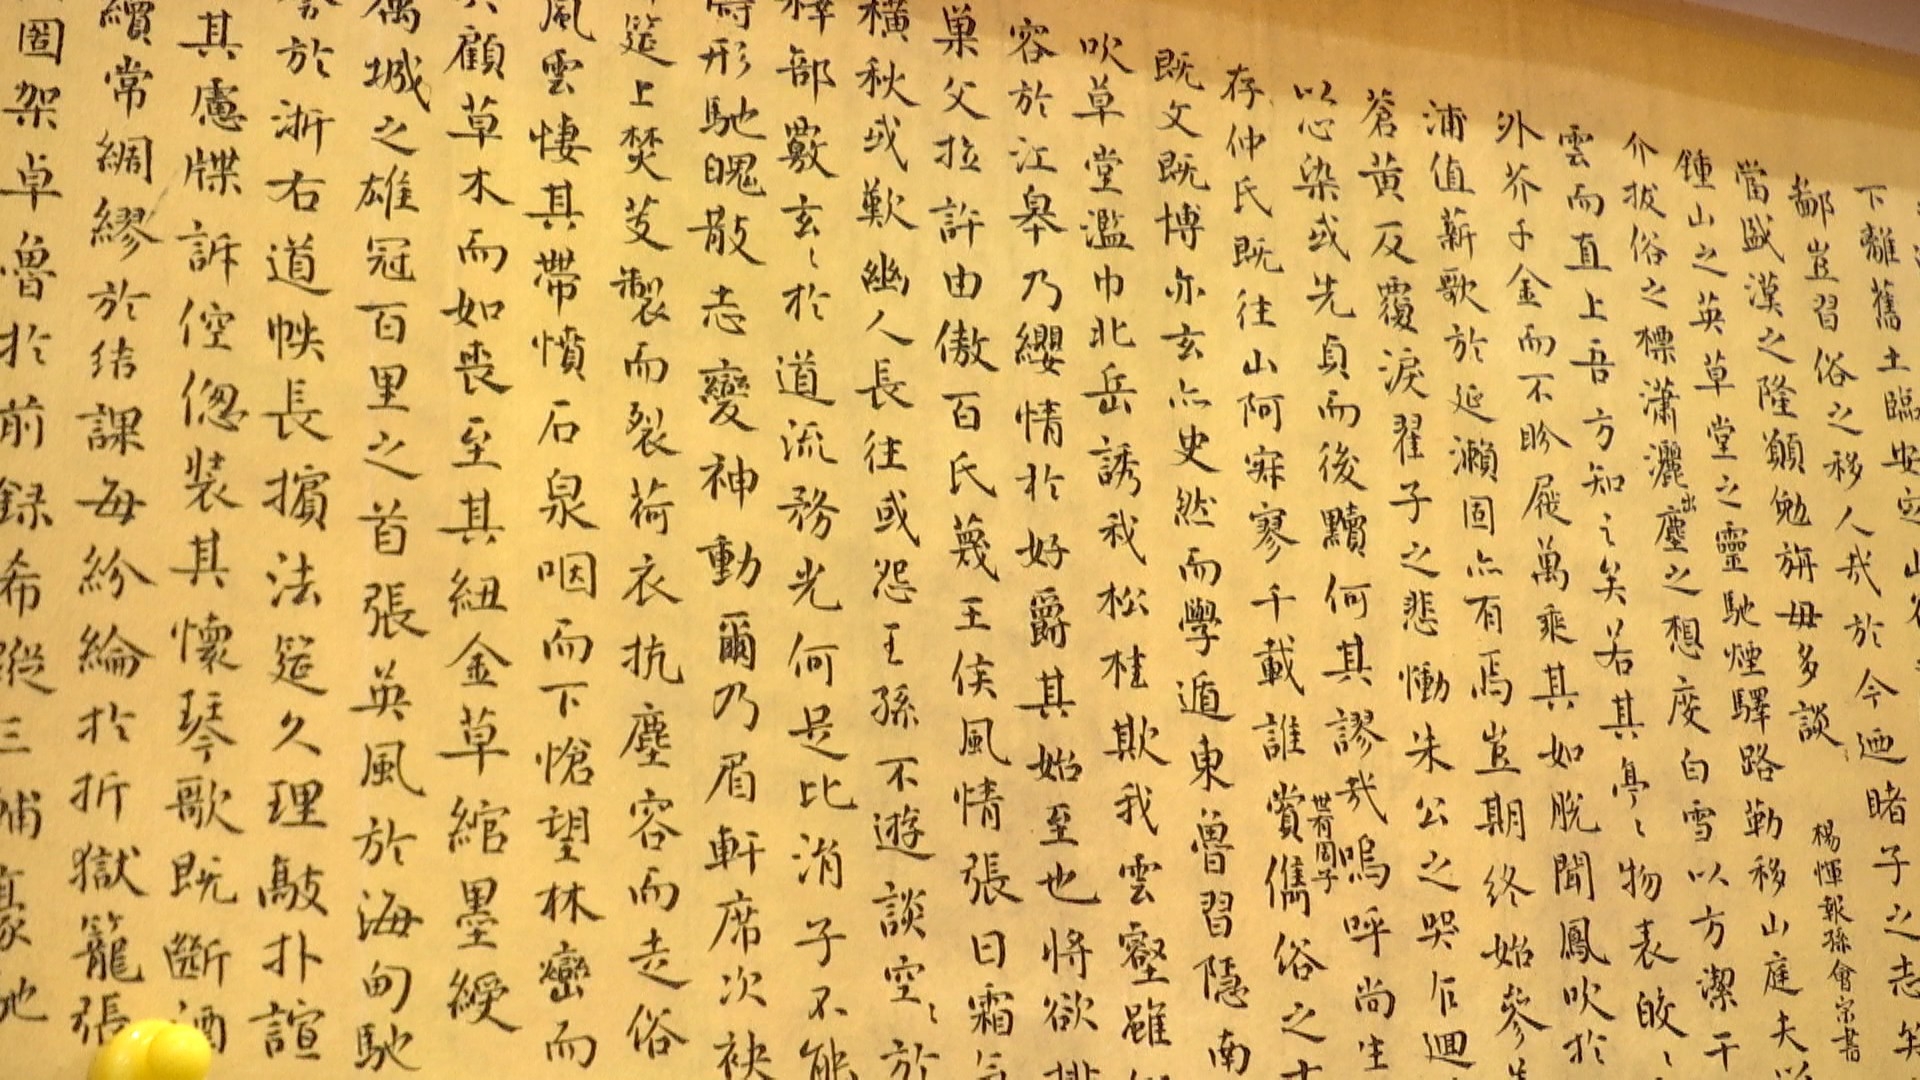 下離舊土臨安定山谷
鄙豈習俗之移人哉於今迺睹子之志矣
當盛漢之隆願勉旃毋多談
楊惲報孫會宗書
鍾山之英草堂之靈馳煙驛路勒移山庭夫以
介拔俗之標瀟灑出塵之想度白雪以方潔干
雲而直上吾方知之矣若其亭〻物表皎〻
外芥千金而不眄屣萬乘其如脫聞鳳吹於
浦值薪歌於延瀨固亦有焉豈期終始參
蒼黃反覆淚翟子之悲慟朱公之哭乍迴
以心染或先貞而後黷何其謬哉嗚呼尚生
存仲氏既往山阿寂寥千載誰賞世有周子儁俗之士
既文既博亦玄亦史然而學遁東魯習隱南
吹草堂濫巾北岳誘我松桂欺我雲壑雖
容於江皋乃纓情於好爵其始至也將欲排
巢父拉許由傲百氏蔑王侯風情張日霜氣
橫秋或歎幽人長往或怨王孫不遊談空〻於
釋部覈玄〻於道流務光何足比涓子不能
形馳魄散志變神動爾乃眉軒席次袂
筵上焚芰製而裂荷衣抗塵容而走俗
風雲悽其帶憤石泉咽而下愴望林巒而
顧草木而如喪至其紐金草綰墨綬
城之雄冠百里之首張英風於海甸馳
於浙右道帙長擯法筵久理敲扑諠
其慮牒訴倥傯裝其懷琴歌既斷酒
續常綢繆於結課每紛綸於折獄籠張
圖架卓魯於前錄希蹤三輔豪馳